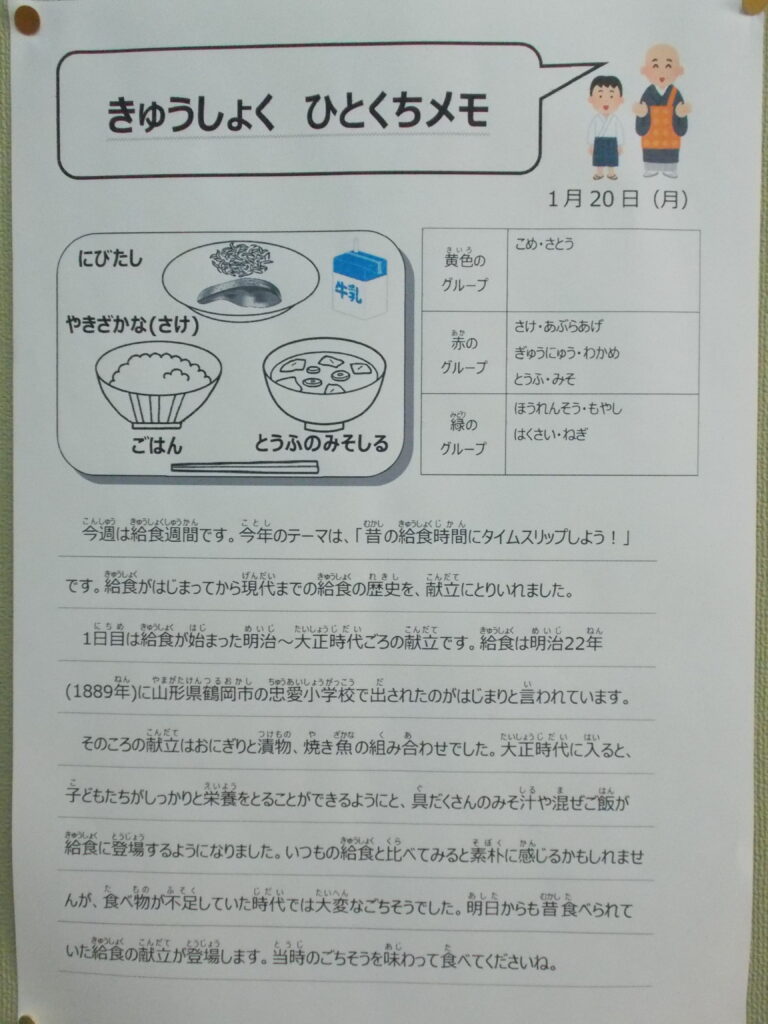 きゅうしょく ひとくちメモ
1月20日（月）
にびたし
牛乳
やきざかな(さけ)
ごはん
とうふのみそしる
黄色のグループ
こめ・さとう
赤のグループ
さけ・あぶらあげ
ぎゅうにゅう・わかめ
とうふ・みそ
緑のグループ
ほうれんそう・もやし
はくさい・ねぎ
今週は給食週間です。今年のテーマは、「昔の給食時間にタイムスリップしよう！」
です。給食がはじまってから現代までの給食の歴史を、献立にとりいれました。
1日目は給食が始まった明治～大正時代ごろの献立です。給食は明治22年
(1889年)に山形県鶴岡市の忠愛小学校で出されたのがはじまりと言われています。
そのころの献立はおにぎりと漬物、焼き魚の組み合わせでした。大正時代に入ると、
子どもたちがしっかりと栄養をとることができるようにと、具だくさんのみそ汁や混ぜご飯が
給食に登場するようになりました。いつもの給食と比べてみると素朴に感じるかもしれませ
んが、食べ物が不足していた時代では大変なごちそうでした。明日からも昔食べられて
いた給食の献立が登場します。当時のごちそうを味わって食べてくださいね。